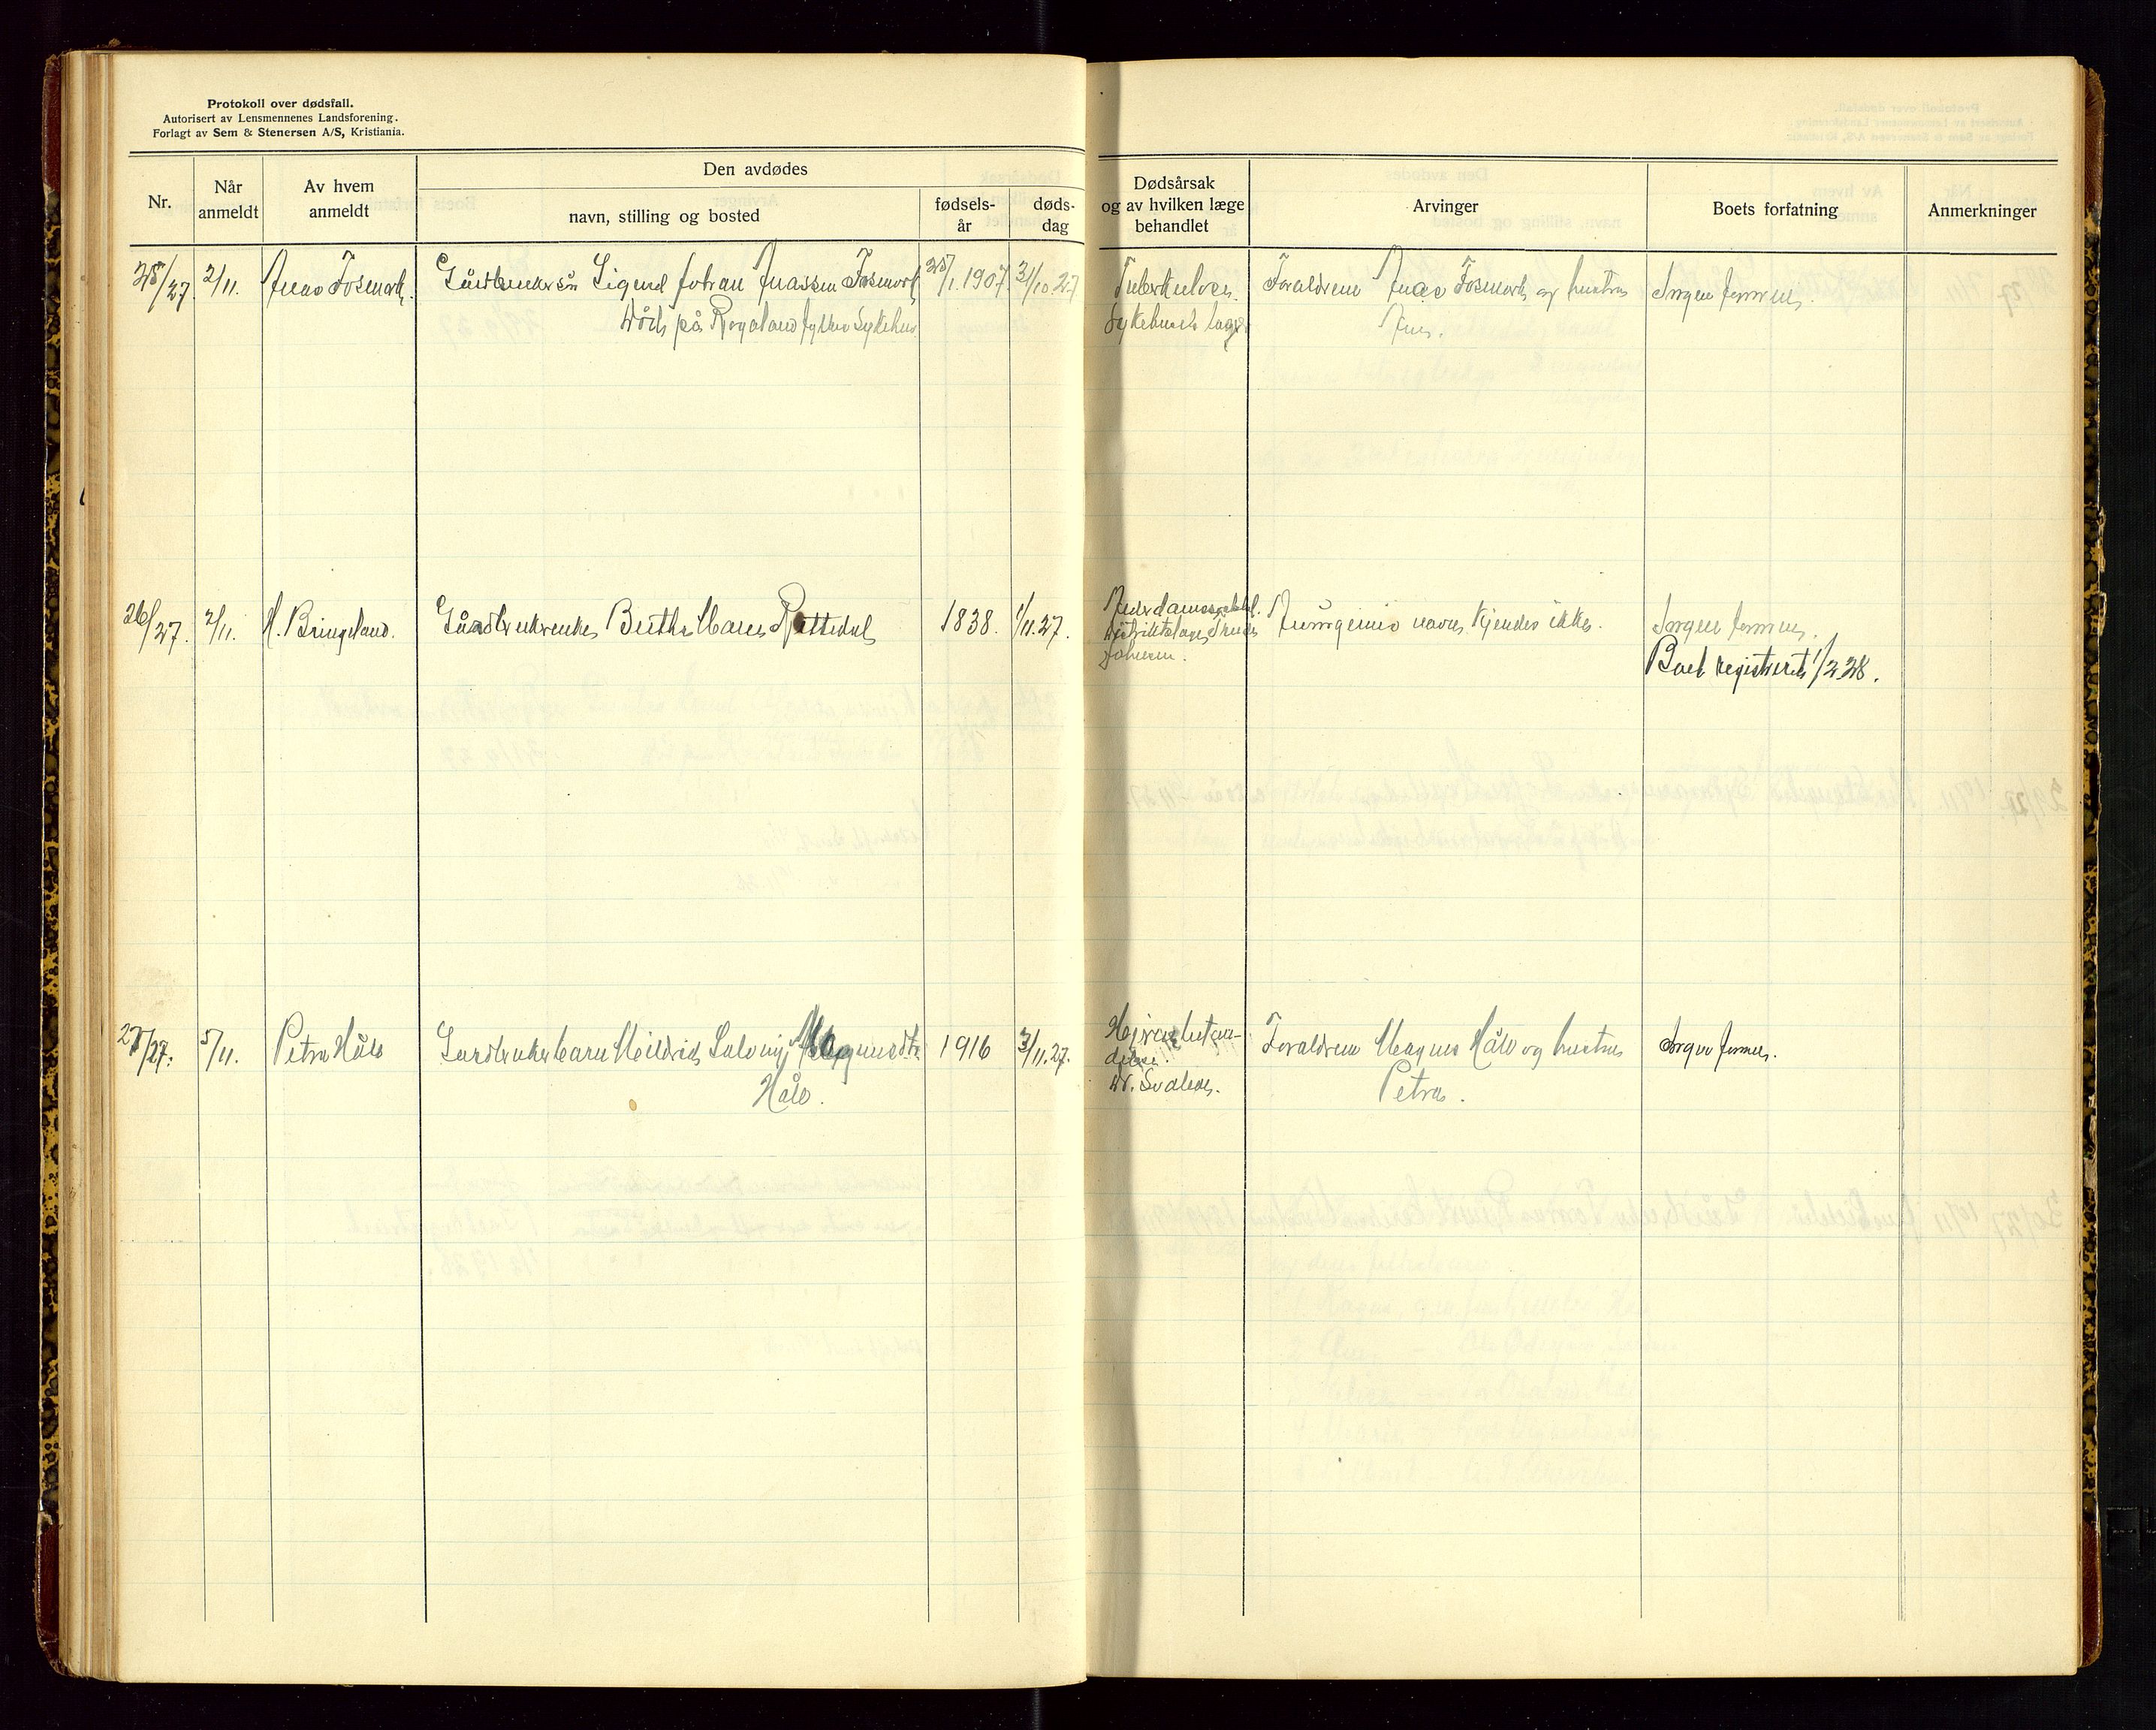 Protokoll over dødsfall.
Autorisert av Lensmennenes Landsforening.
Forlagt av Sem & Stenersen A/S, Kristiania.
Nr.
Når anmeldt
Av hvem anmeldt
Den avdødes
navn, stilling og bosted
fødsels-år
døds-dag
Dødsårsak og av hvilken læge behandlet
Arvinger
Boets forfatning
Anmerkninger
25/27. 2/11. Fosmark. Gårdbrukersøn Sigurd Johan Fosmark 25/1. 1907 31/10 27
Død på Rogaland fylkes Sykehus
Tuberkulose.
Sykehusets læge
Forældrene Fosmark og hustru
Ingen formue.
26/27. 2/11. H. Bringeland. Gårdbrukerenke Berthe Marie Rettedal 1838. 1/11.27.
navne kjendes ikke.
Ingen formue.
Boet registreret 1/2 28.
27/27. 5/11. Petra Håla Gardbrukerbarn Meldrid Solveig Magnusdtr. 1916 3/11.27.
Håla.
Dr. Svalestu.
Forældrene Magnus Håla og hustru
Petra.
Ingen formue.